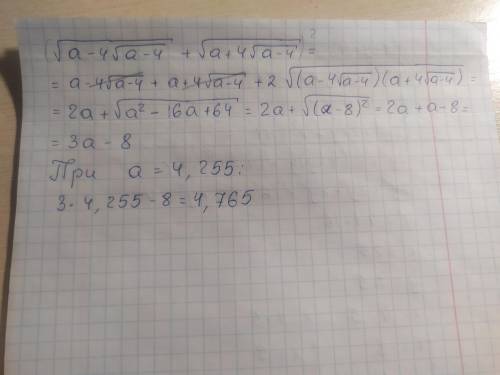 (√(a-4√(a-4)) + √(a+4√(a-4)))² =
= a-4√(a-4) + a+4√(a-4) + 2√((a-4√(a-4))(a+4√(a-4))) =
= 2a + √(a²-16a+64) = 2a + √((a-8)²) = 2a + a-8 =
= 3a - 8
При a = 4,255:
3·4,255-8 = 4,765